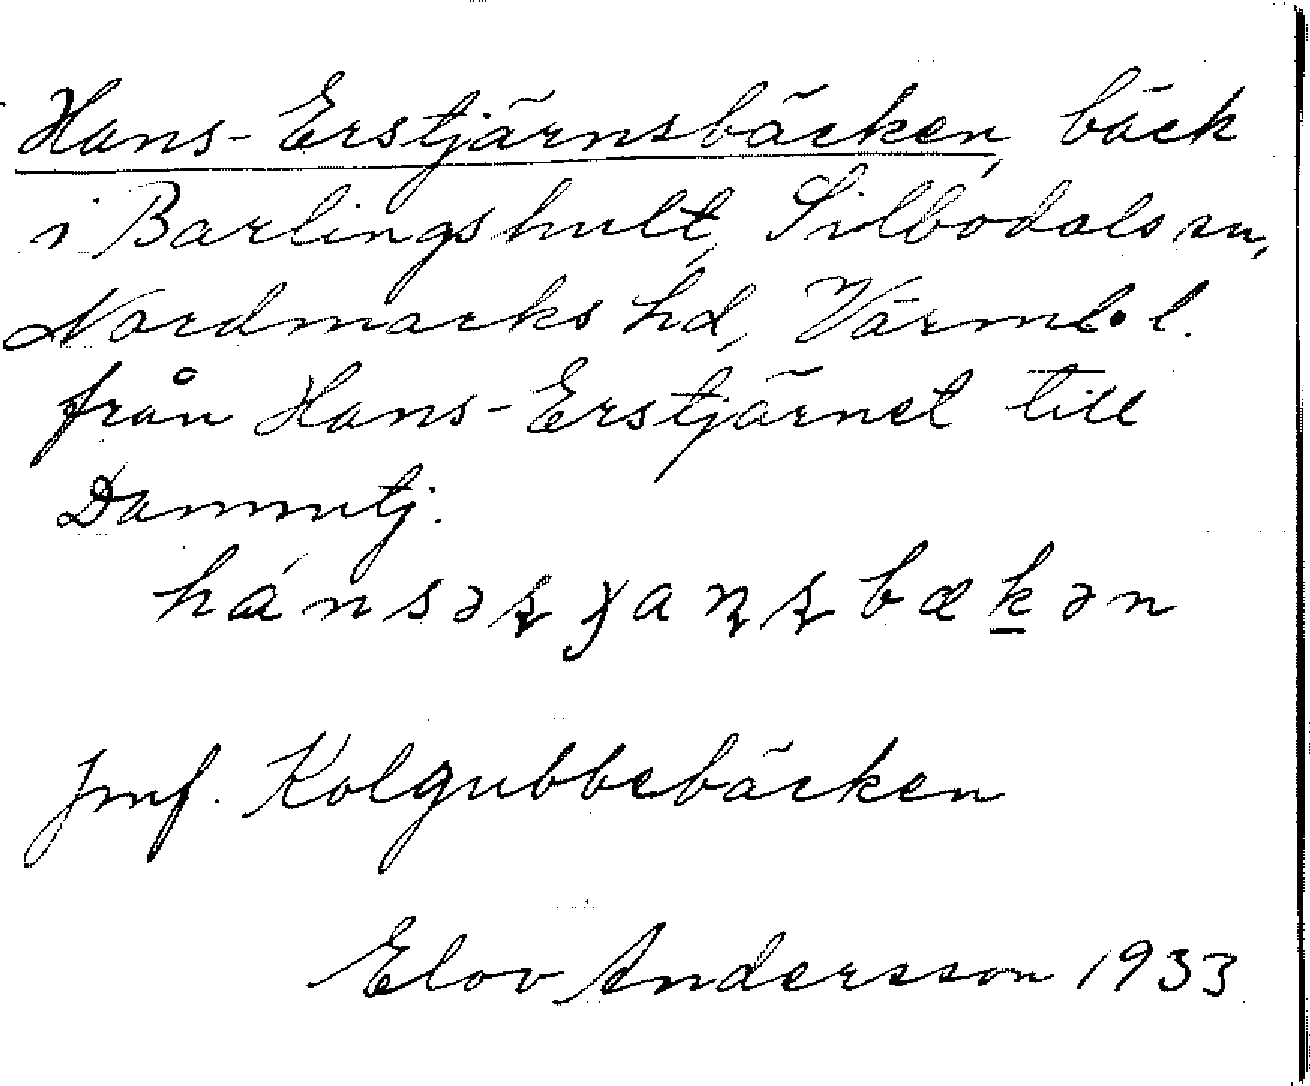 Hans-Erstjärnsbäcken, bäck
i Barlingshult, Silbodals sn,
Nordmarks hd, Värml. l.
från Hans-Erstjärnet till
Dammtj.
hánsəʂɟaɳʂbækən
Jmf. Kolgubbebäcken
Elov Andersson 1933